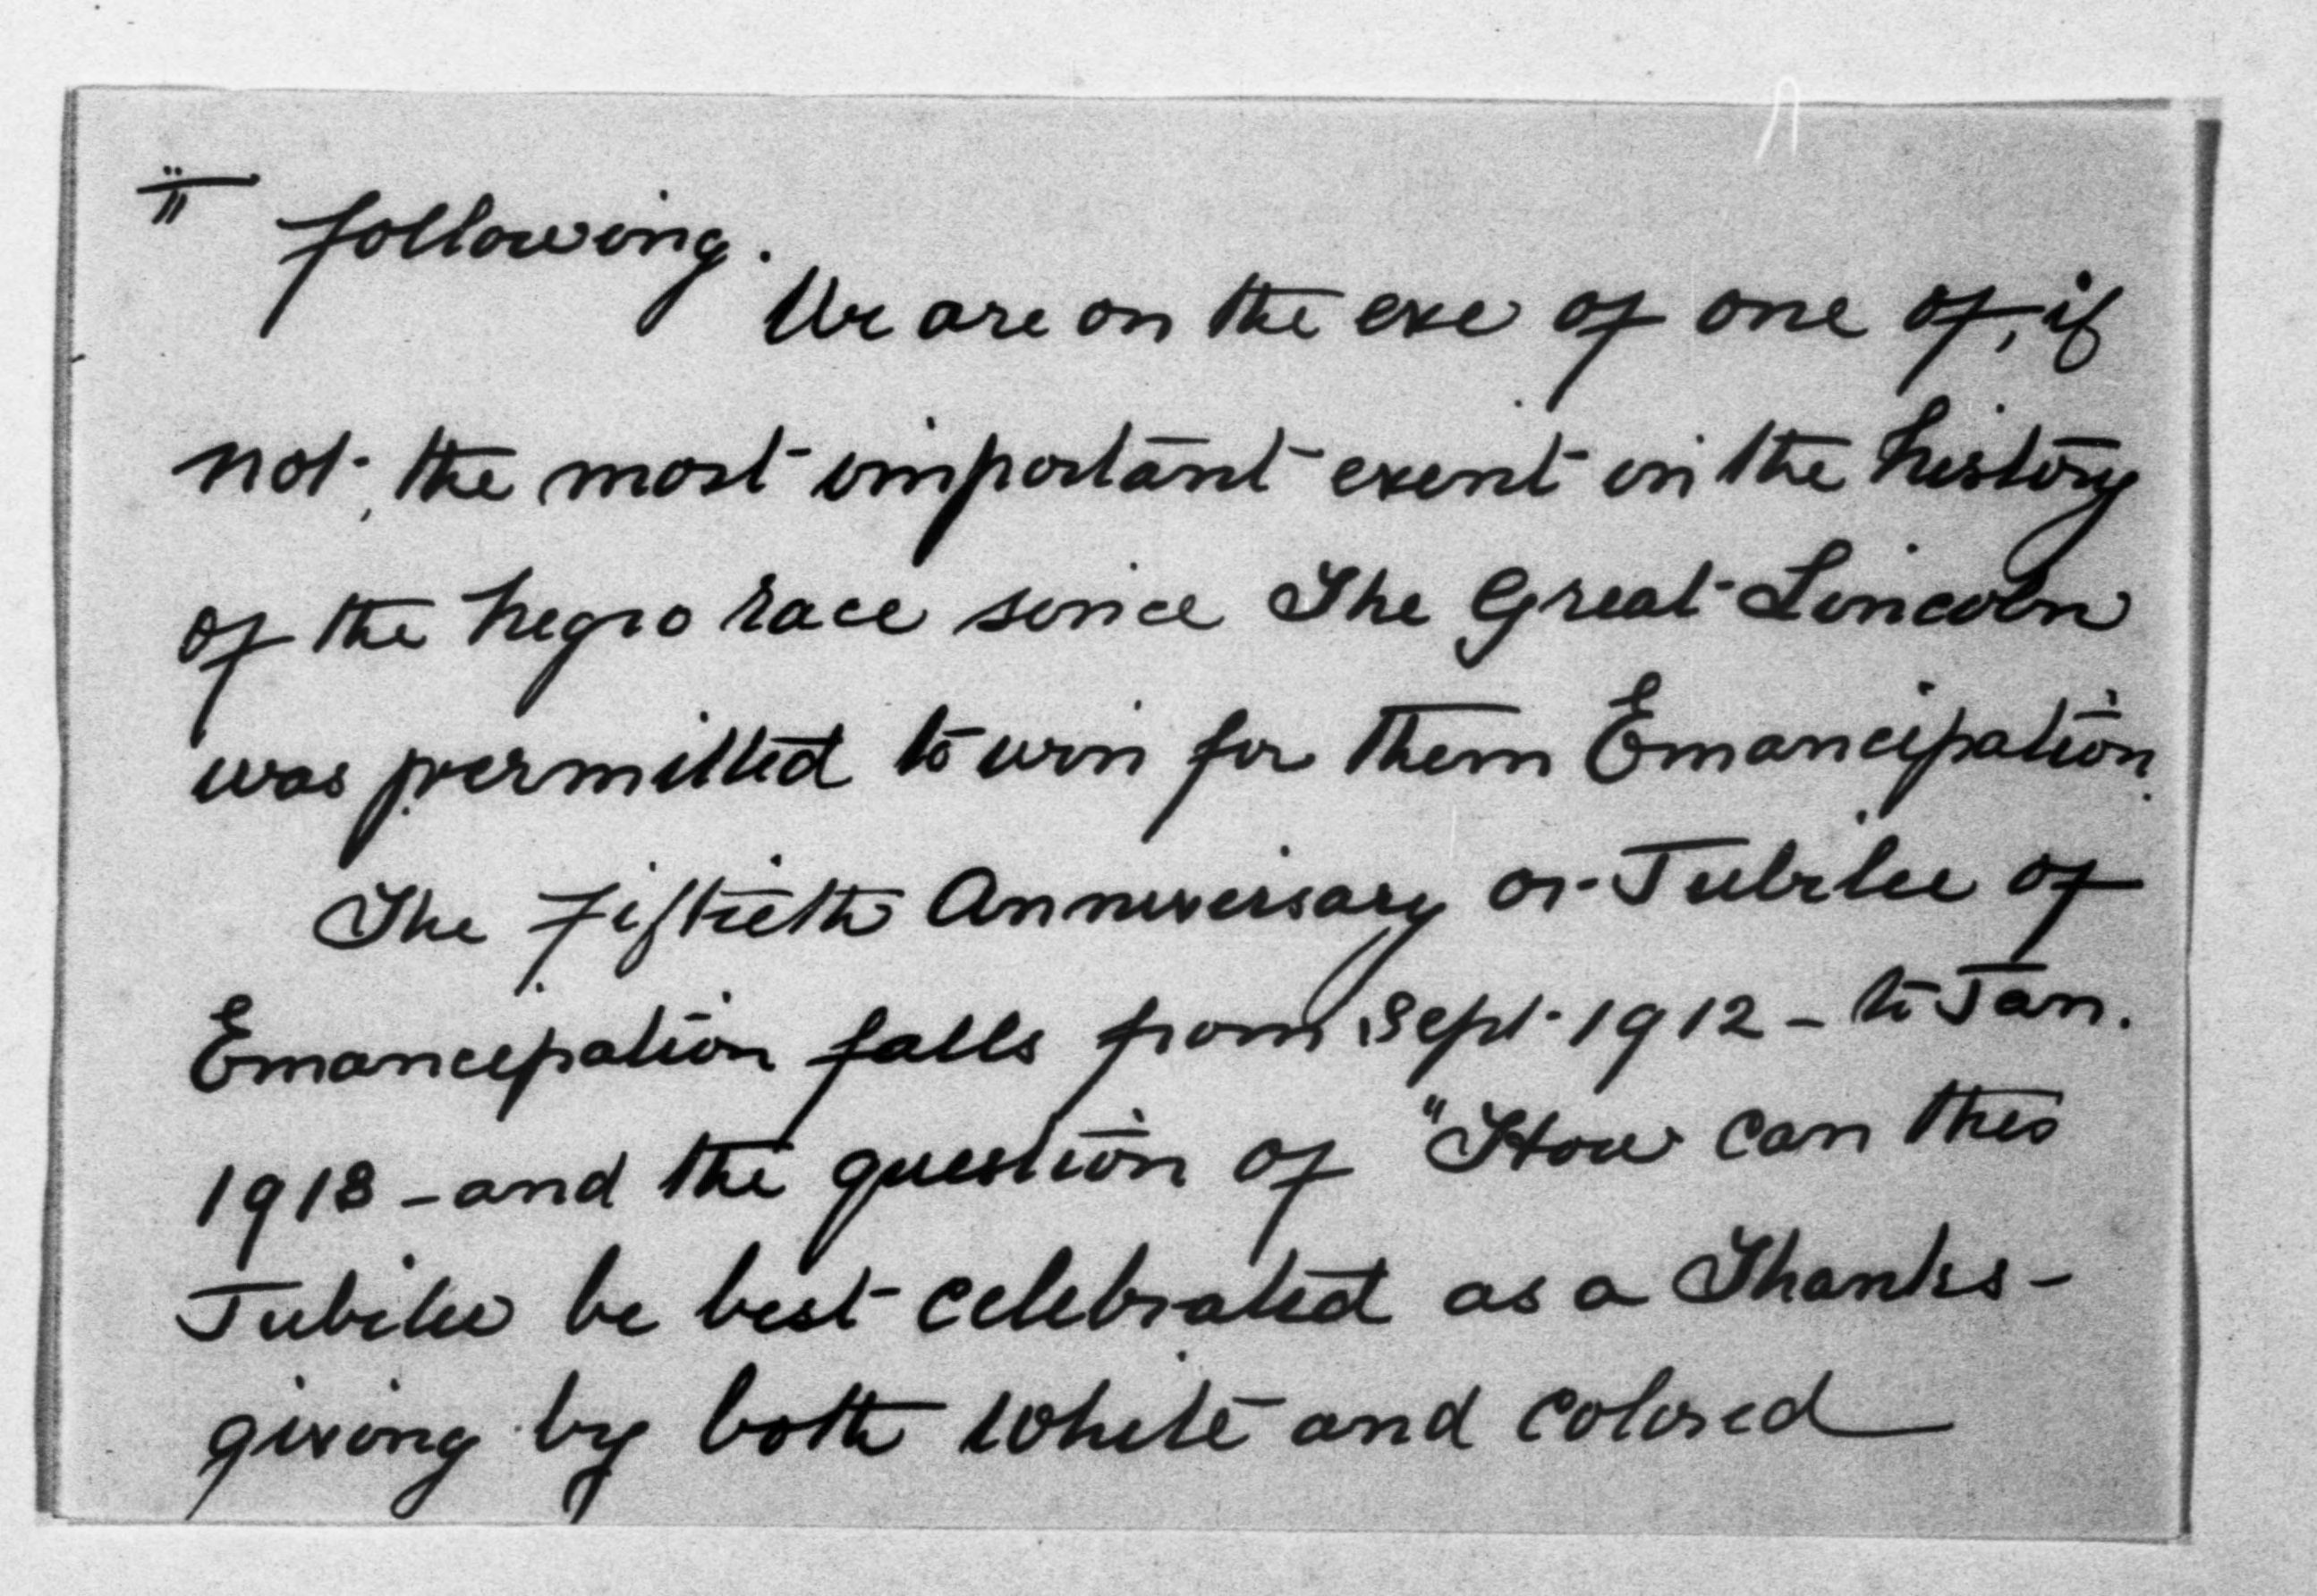 II
following.
We are on the eve of one of, if
not, the most important event in the history
of the negro race since The Great Lincoln
was permitted to win for them Emancipation.
The Fiftieth Anniversary or Jubilee of
Emancipation falls from Sept. 1912 - to Jan.
1913 - and the question of "How can this
Jubilee be best celebrated as a Thanks-
giving by both white and colored